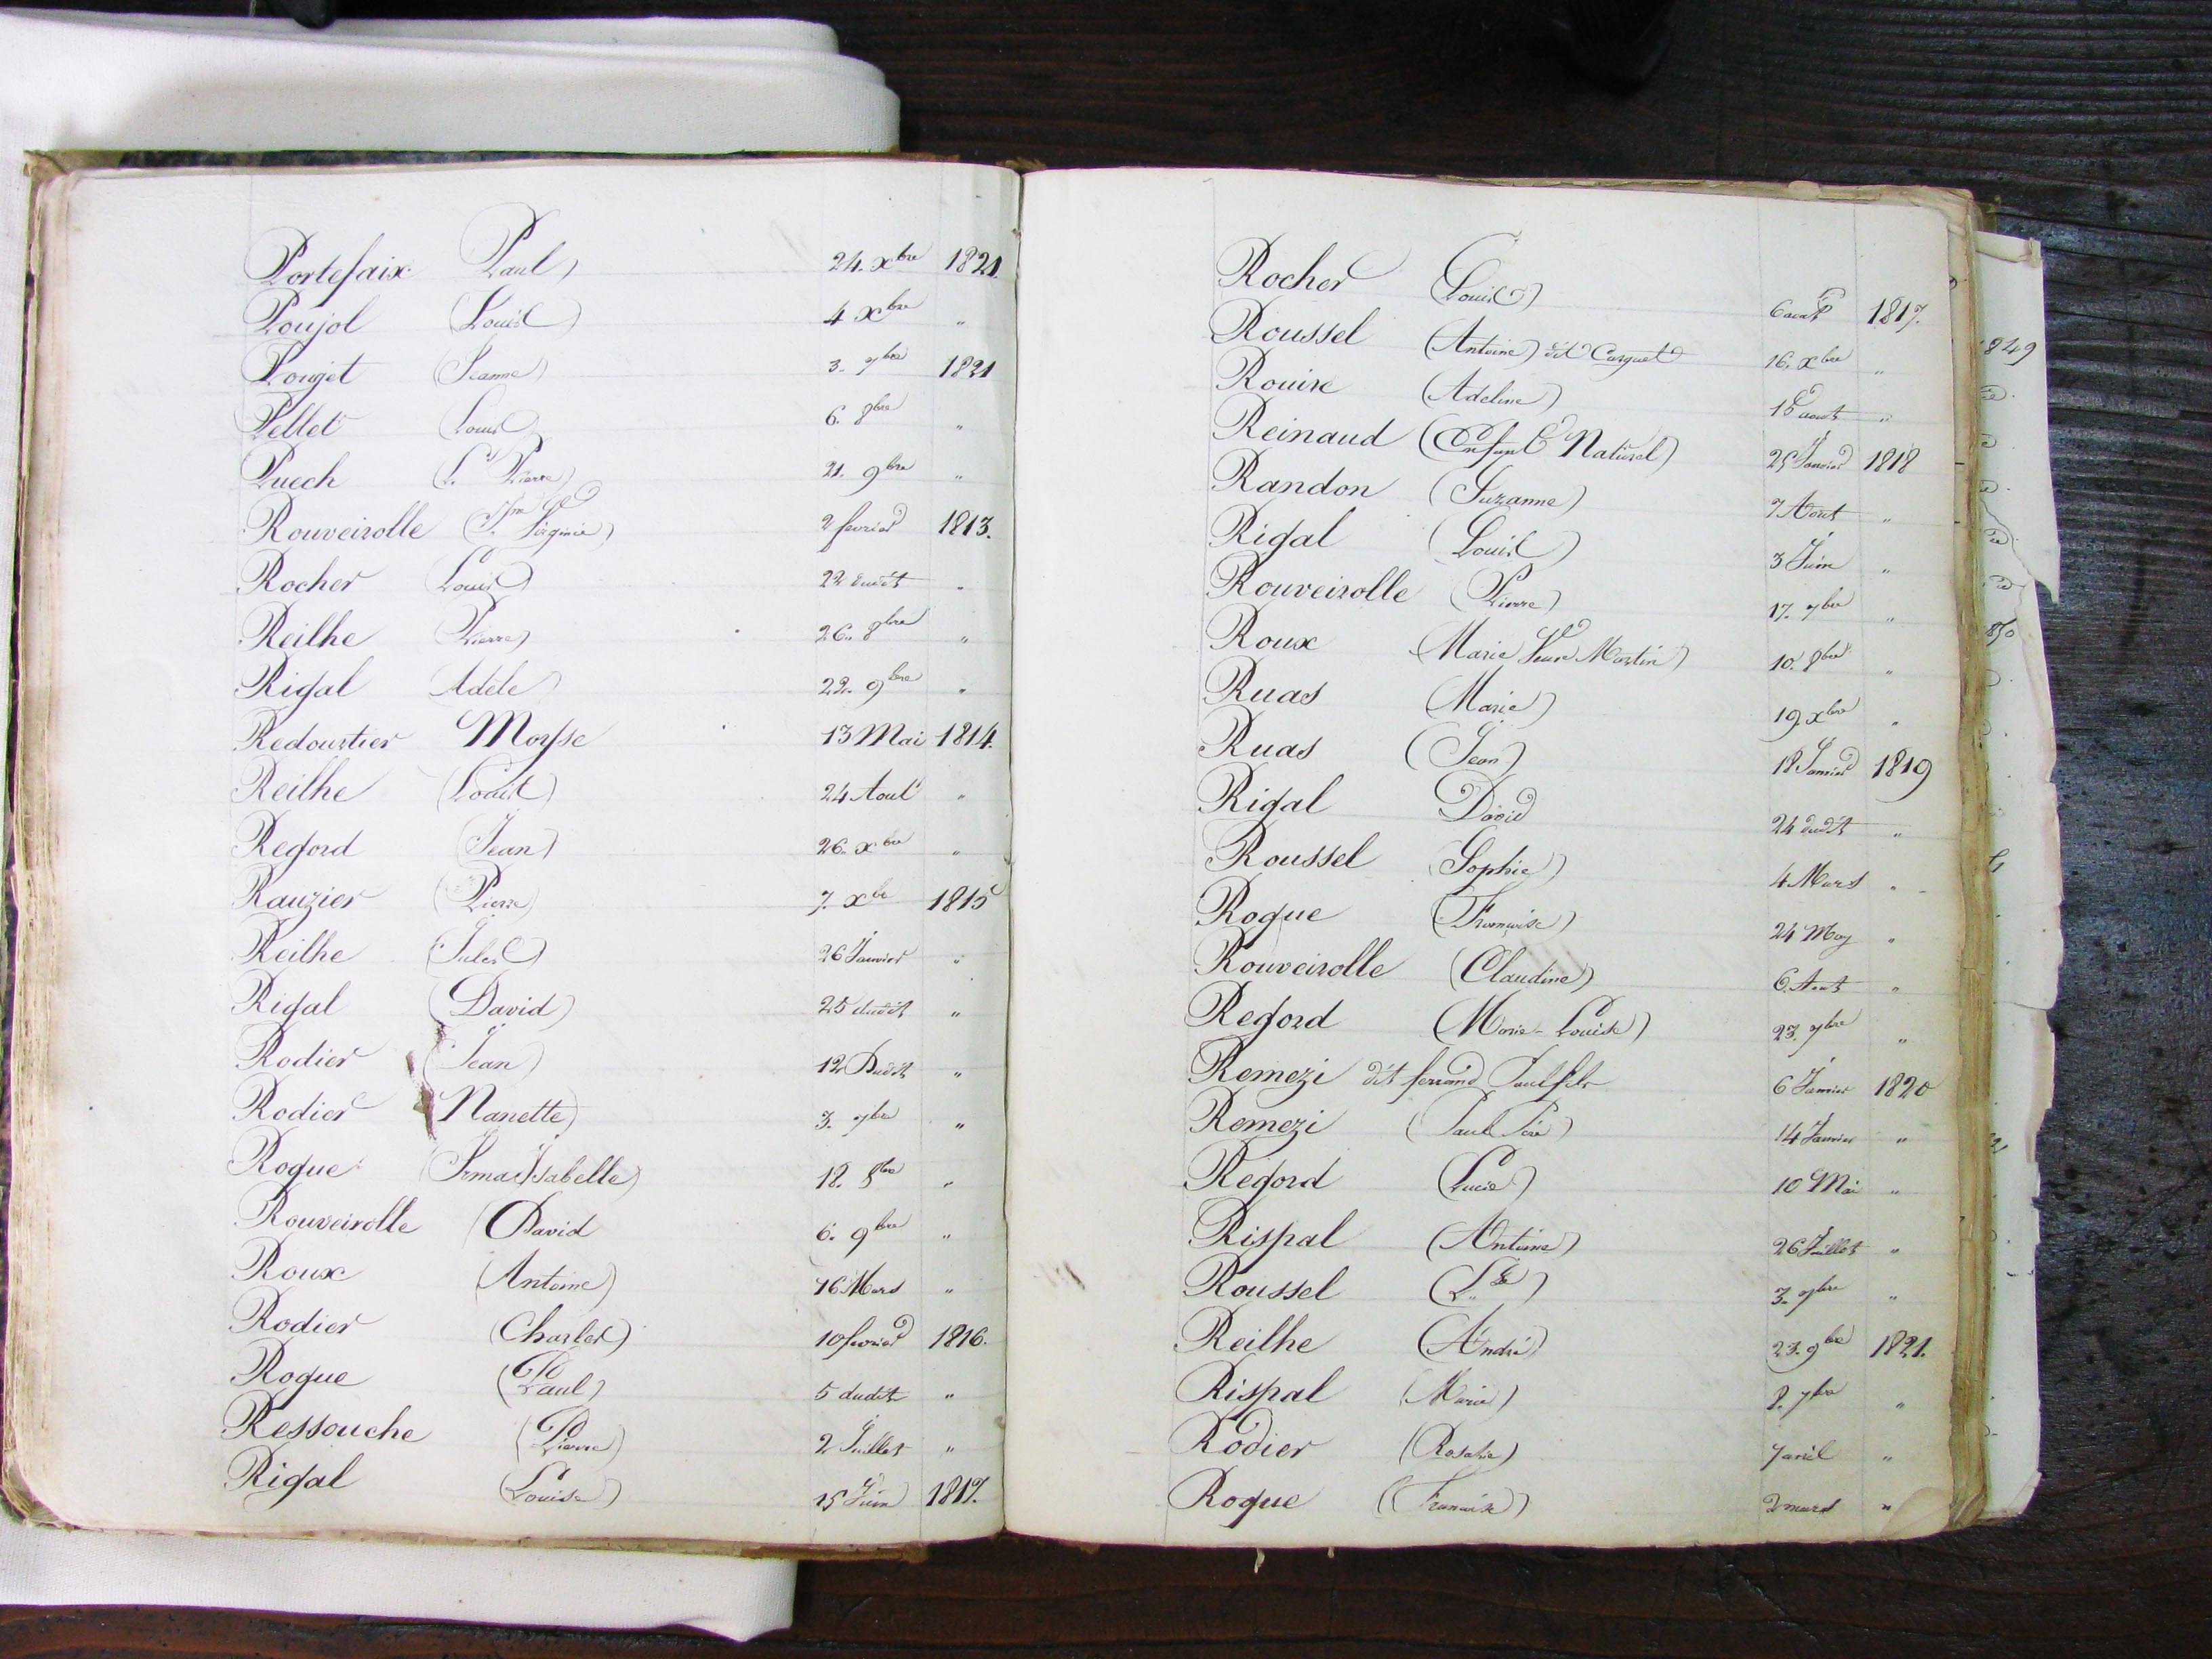 Portefaix Paul) 24. xbre 1821.
Poujol (Louis) 4 xbre "
Pouget (Jeanne) 3. 7bre 1821
Pellet Louis 6. 8bre "
Puech (L. Pierre) 21. 9bre "
Rouveirolle Virginie) 2 fevrier 1813.
Rocher Louis) 22 dudit "
Reilhe Pierre) 26. 8bre "
Rigal Adèle) 22. 9bre "
Redourtier Moyse 13 Mai 1814.
Reilhe (Louis) 24 Aout "
Regord (Jean) 26. xbre "
Rauzier (Pierre) 7. xbre 1815
Reilhe (Jules) 26 Janvier "
Rigal (David) 25 dudit "
Rodier (Jean) 12 Dudit "
Rodier Nanette) 3. 7bre "
Roque (Irma Isabelle) 18. 8bre "
Rouveirolle (David 6. 9bre "
Roux (Antoine) 16 Mars "
Rodier (Charles) 10 fevrier 1816.
Roque (Paul) 5 dudit "
Ressouche (Pierre) 2 Juillet "
Rigal (Louise) 15 Juin 1817.
Rocher (Louis) 6 aout 1817.
Roussel (Antoine) dit Carquet 16. xbre "
Rouire (Adeline) 18 aout "
Reinaud (Enfant Naturel) 25 Janvier 1818
Randon (Suzanne) 7 Aout "
Rigal (Louis) 3 Juin "
Rouveirolle (Pierre) 17. 7bre "
Roux (Marie Veuve Martin) 10. 8bre "
Ruas (Marie) 19. xbre "
Ruas (Jean) 18 Janvier 1819
Rigal David 24 dudit "
Roussel (Sophie) 4 Mars "
Roque (Françoise) 24 May "
Rouveirolle (Claudine) 6. Aout "
Regord (Marie-Louise) 23. 7bre "
Remezi dit ferrand Paul fils 6 Janvier 1820
Remezi (Paul Père) 14 Janvier "
Regord (Lucie) 10 Mai "
Rispal (Antoine) 26 Juillet "
Roussel 3. 7bre "
Reilhe (André) 23. 9bre 1821.
Rispal (Marie) 8. 7bre "
Rodier (Rosalie) 7 avril "
Roque (Francoise) 2 mars "
1849
850